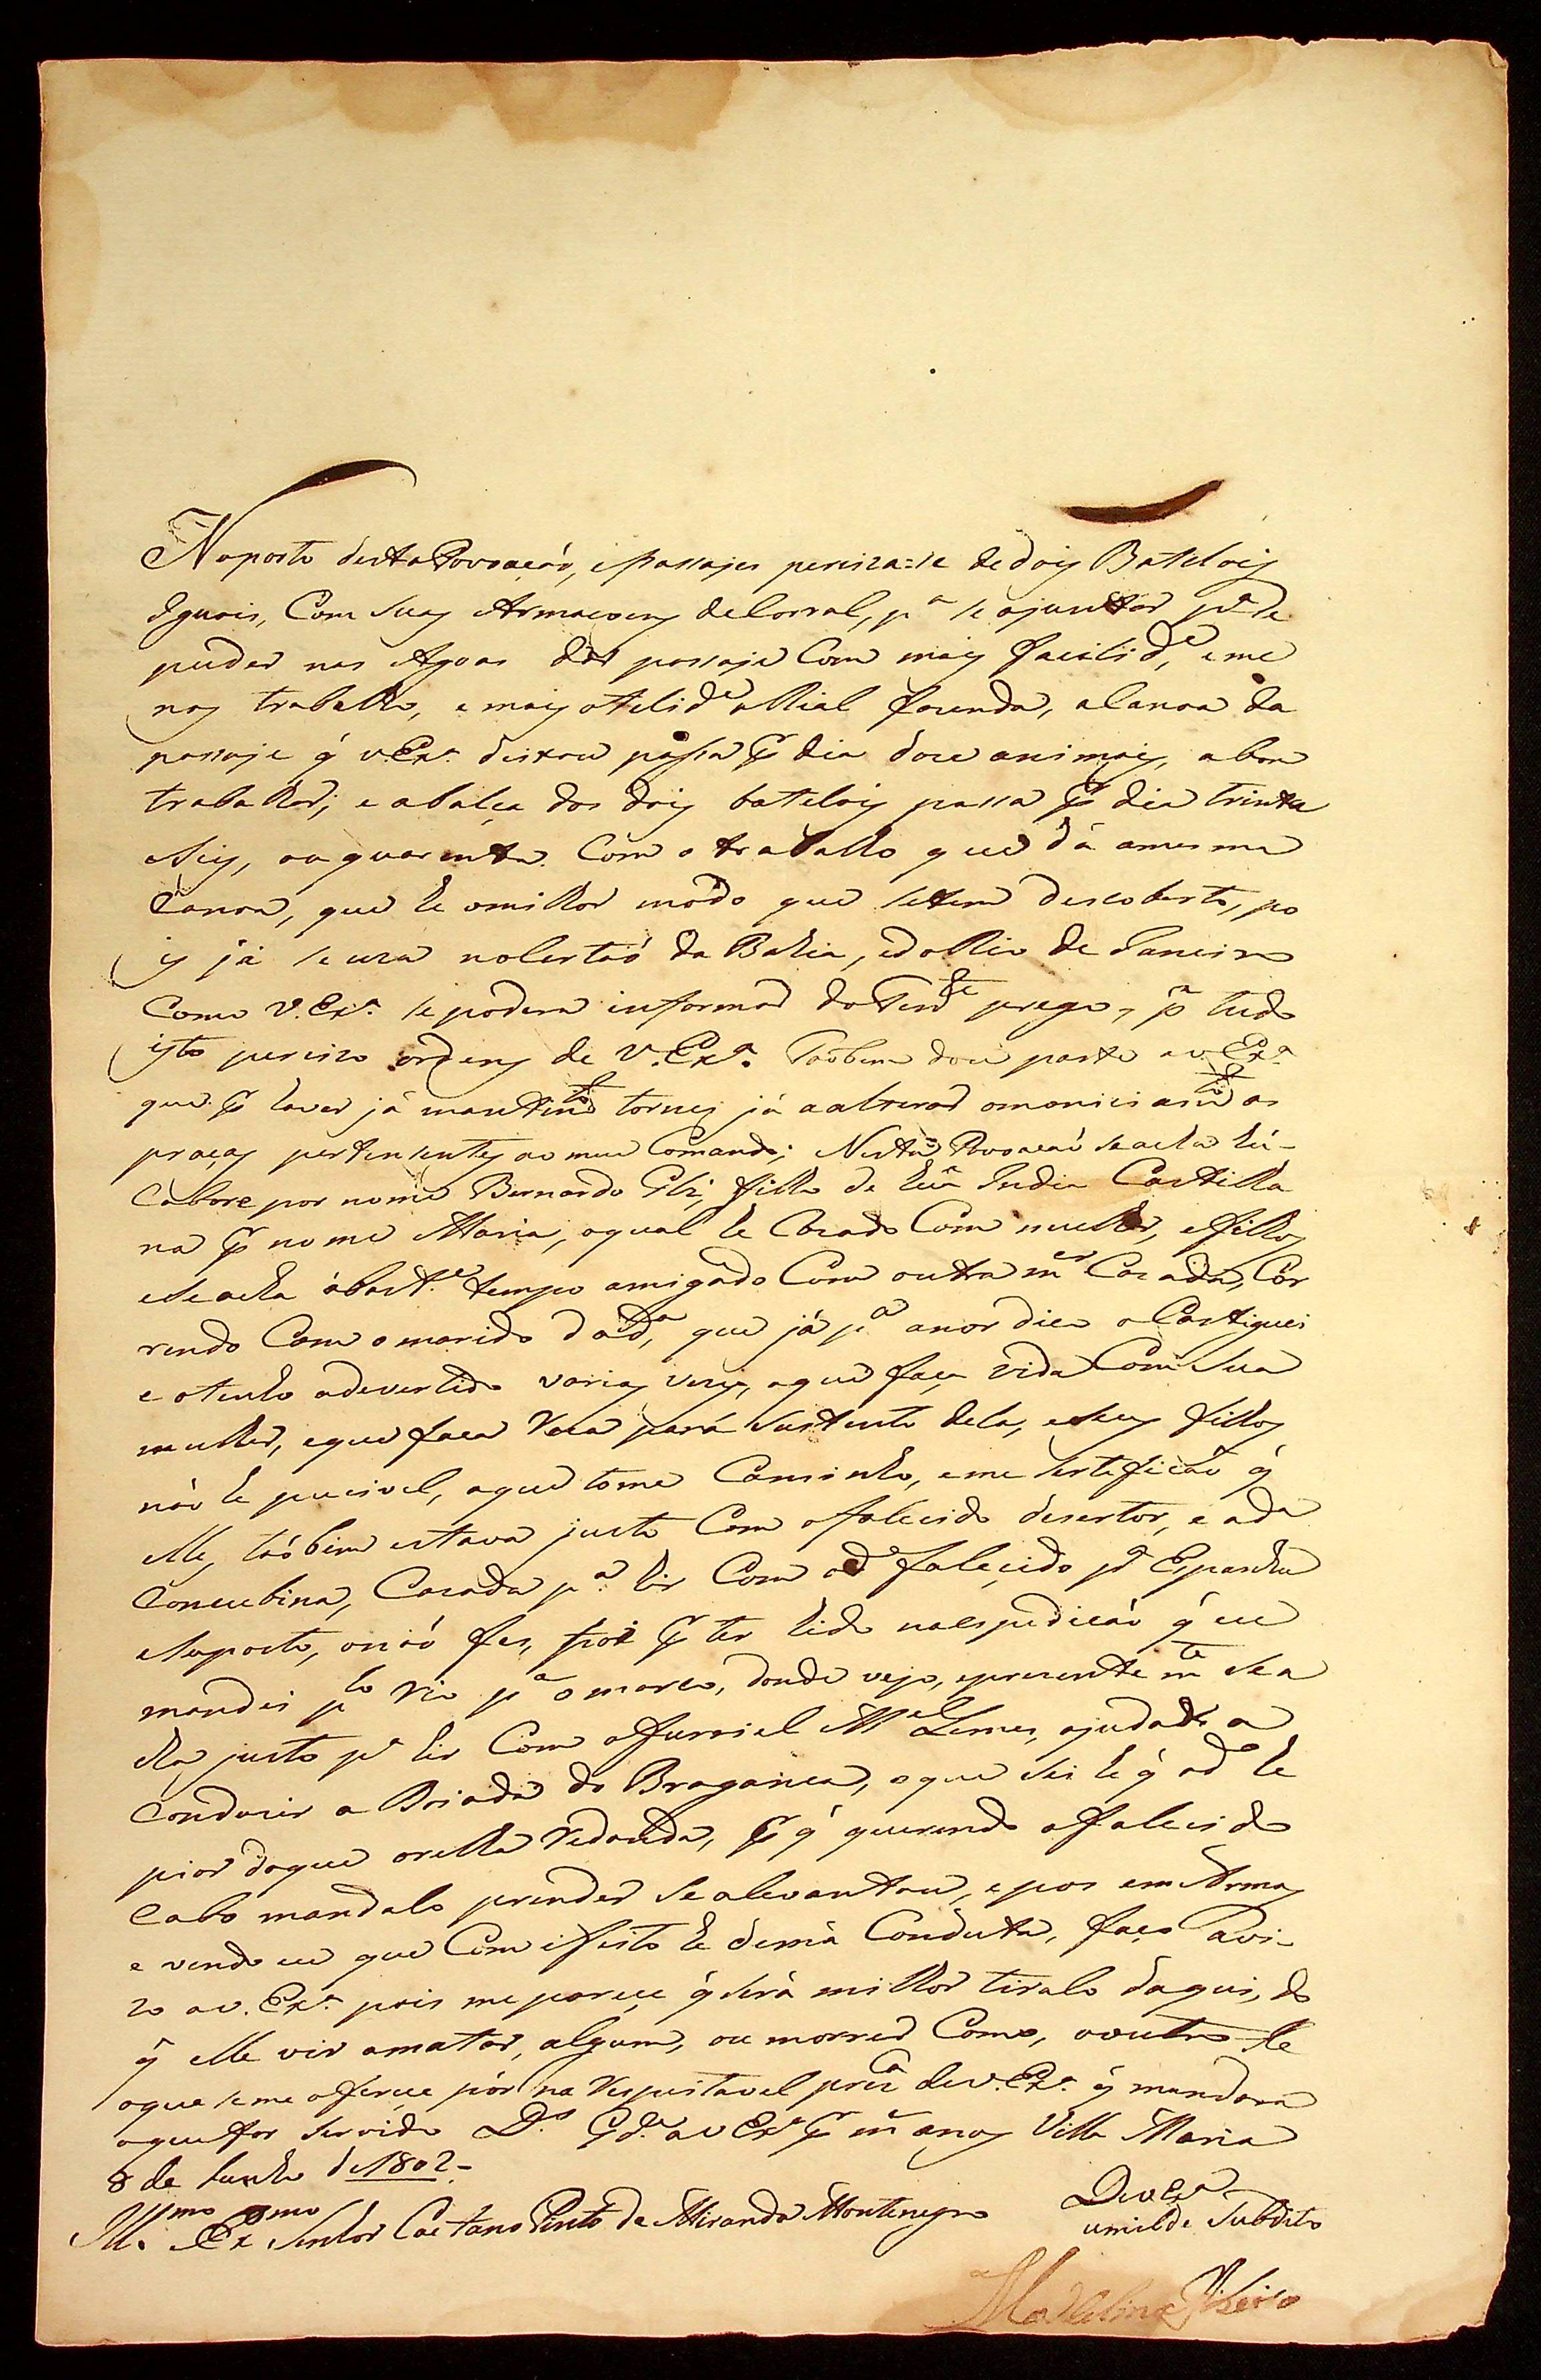 Noporto destaPovoação, epassajes perciza=se dedois Batelois
Iguais, Com Suas Armacoens deCorral, pª se ajuntar pª se
puder nas Agoas dar passaje Com mais facilidᵉ, eme
nos trabalho, emais otelidᵉ aRial fazenda, aCanoa da
passaje q̃ vExª deixou passa ꝑ dia doze animais, abom
trabalhar; e abalça dos dois batelois passa ꝑ dia trinta
eSeis, ouquarenta. Com o trabalho que dá amesma
Canoa, que he omilhor módo que setem descoberto, po
is já se uza noSertaõ da Bahia, edoRio de Janeiro
Como V.Exª se podera informar do Tenᵗᵉ prego, pª tudo
isto perciso ordens de V.Exª. Taõbem dou parte avExª
que ꝑ haver já mantimᵗᵒ tornei já aalterar omoniciamᵗᵒ as
praças pertensentes ao meu Comando; Nesta Povoacaõ seacha hú
Cabore por nome Bernardo Glz, filho de húa India Castelha
na ꝑ nome Maria, oqual he Cazado Com mulher, efilhos
eSeacha ábastᵉ tempo amigado Com outra mᵉʳ Cazada, Cor
rendo Com omarido dadª, que já pª anor dica oCastiguei
e otenho adevertido varias vezes, aque faça vida Com Sua
mulher, eque faca Roca pará Sustento dela, eSeus filhos
náo he pucivel, aque tome Caminho, eme Sertificaõ q̃
elle, taõbem estava justo Com ofalecido desertor, e adª
Concubina, Cazada pª hir Com odº falecido pª Espanha
eSuposto, onaõ fes, foi ꝑ ter hido naespediçáo q̃ eu
mandei pˡᵒ Rio pª omarco, donde veyo, eprezentemᵗᵉ sea
cha justo pª hir Com oFurriel Mᵉˡ Lemes, ajudar a
Conduzir a Boiada do Braganca, oque Sei he q̃ odº he
pior doque orelha Redonda, ꝑ q̃ querendo ofalecido
Cabo mandalo prender Sealevantou, epos em Armas
e vendo eu que Com efeito he demá Conduta, faço avi
zo av.Exª pois me parece q̃ Sérá milhor tiralo daqui, do
q̃ elle vir amatar, algum, ou morrer Como, ooutro he
oque seme oferece pór na Respeitavel prezª dev.Exª q̃ mandara
oquefor Servido Dˢ Gdᵉ avExª ꝑ mˢ anos Villa Maria
8 de Junho de 1802-
Illᵐᵒ Exᵐᵒ Senhor Caetano Pinto de Miranda Montenegro
DevExª
umilde Subdito
Ribeiro